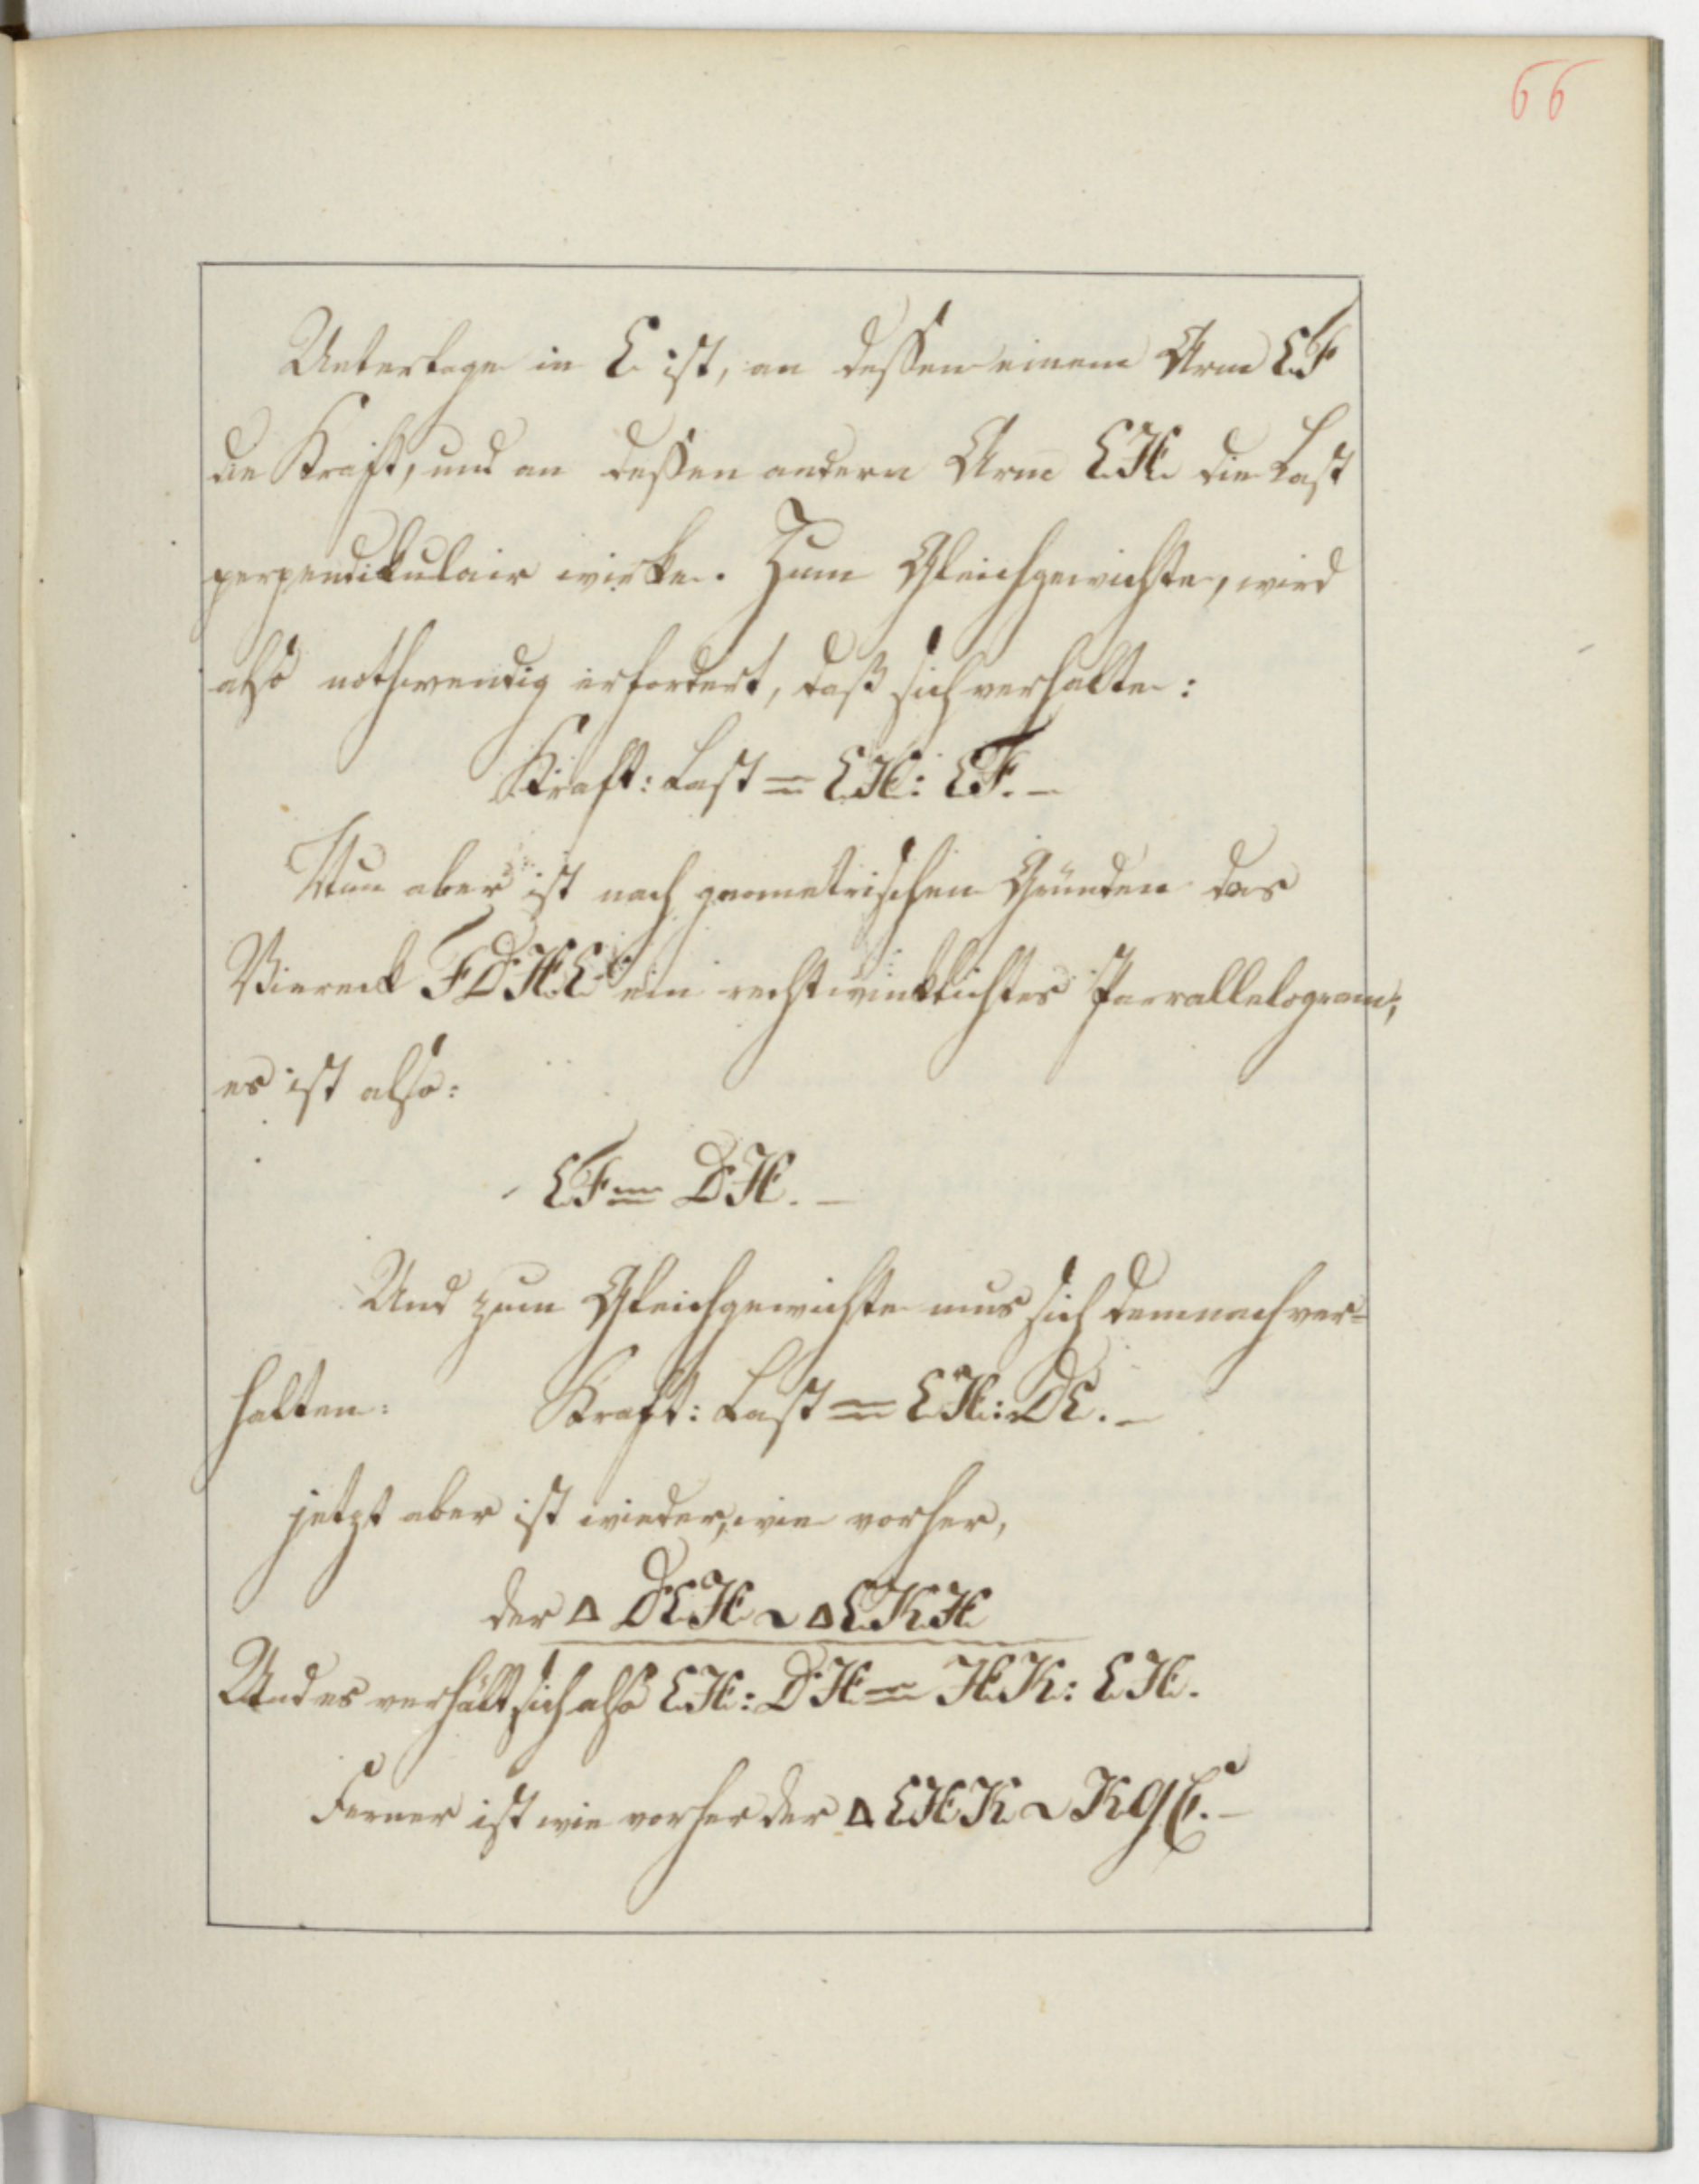 66
Unterlage in E ist, an dessen einem Arm EF
die Kraft, und an dessen andern Arm EH die Last
perpendikulair wirke. Zum Gleichgewichte, wird
also nothwendig erfordert, daß sich verhalte:
Kraft: Last = EH: EF. –
Nun aber ist nach geometrischen Gründen das
Viereck FDHE ein rechtwinklichtes Parrallelogram,
es ist also:
EF = DH. –
Und zum Gleichgewichte mus sich demnach ver=
halten: Kraft: Last = EH: DE. –
jetzt aber ist wieder, wie vorher,
der Δ DEH ~ Δ EKH
Und es verhält sich also EH: DH = HK: EH.
Ferner ist wie vorher der Δ EHK ~ KGC. –